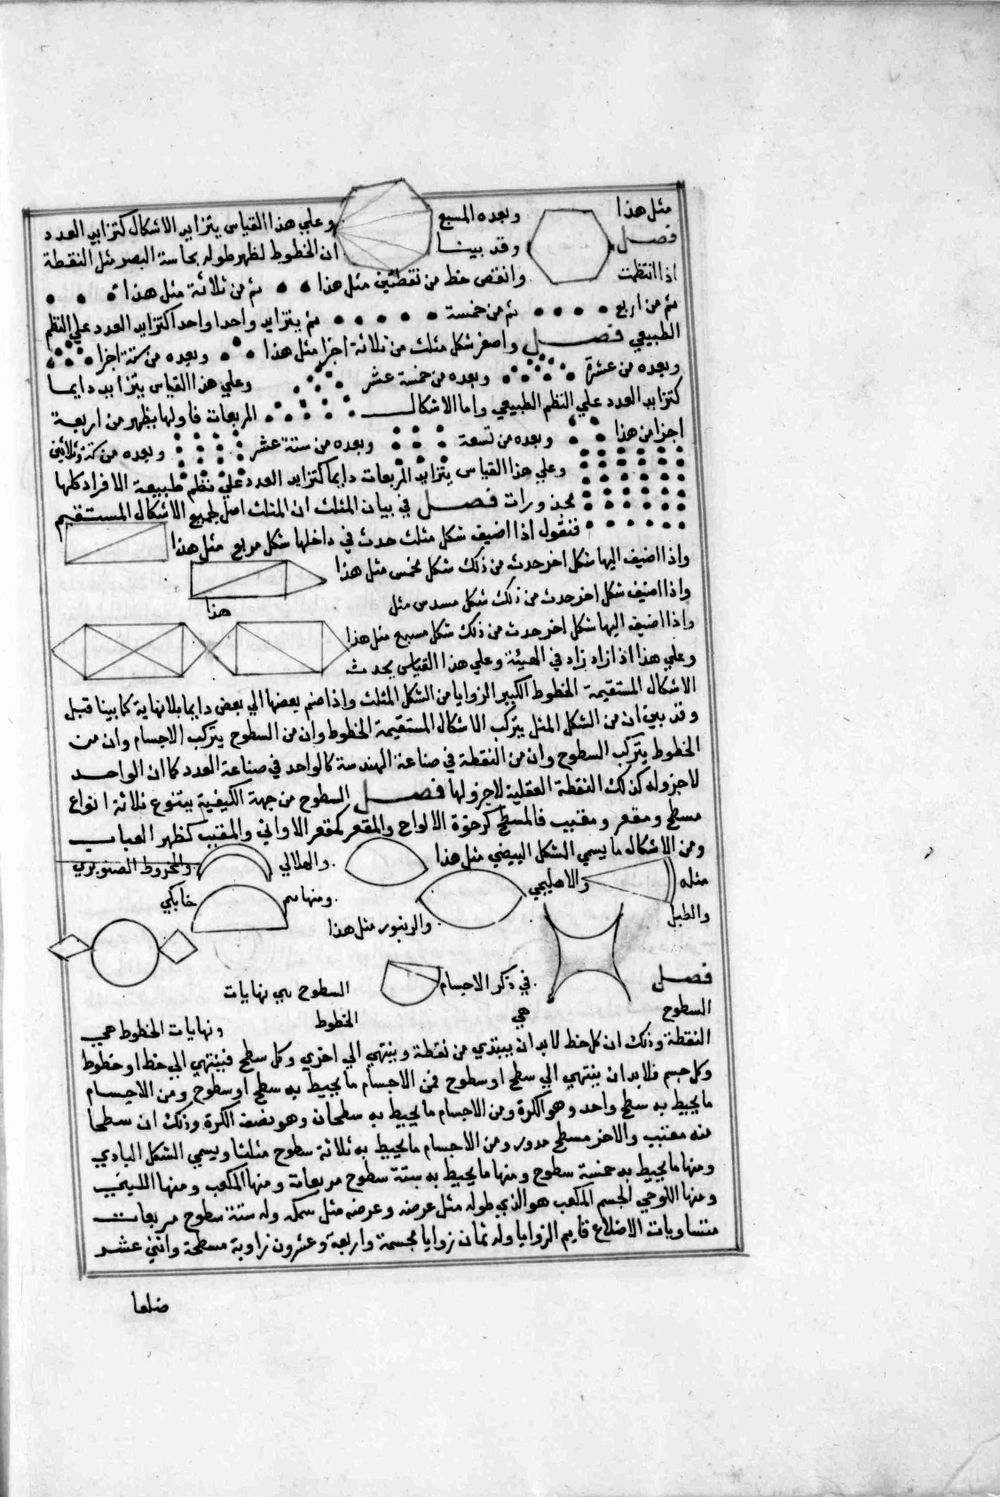 مثل هذا وبعده المسبع وعلي هذا القياس يتزايد الاشكال كتزايد العدد
فصل وقد بينا ان الخطوط لظهر طوله بحاسة البصر مثل النقطة
اذا انتظمت وانقص خط من نقطتين مثل هذا ثم من ثلاثة مثل هذا
ثم من اربع ثم من خمسة ثم يتزايد واحدا واحدا كتزايد العدد علي النظم
الطبيعي فصل واصغر شكل مثلث من ثلاثة اجزا مثل هذا وبعده من ستة اجزا
وبعده من عشرة وبعده من خمسة عشر وعلي هذا القياس يتزايد دايما
كتزايد العدد علي النظم الطبيعي واما الاشكال المربعات فاولها يظهر من اربعة
اجزا من هذا وبعده من تسعة وبعده من ستة عشر وبعده من ستة وثلاثين
وعلي هذا القياس يتزايد المربعات دايما كتزايد العدد علي نظم طبيعة الافراد كلها
مجذورات فصل في بيان المثلث ان المثلث اصل لجميع الاشكال المستقيم
فنقول اذا اضيف شكل مثلث حدث في داخلها شكل مربع مثل هذا
واذا اضيف اليها شكل اخر حدث من ذلك شكل مخمس مثل هذا
واذا اضيف شكل اخر حدث من ذلك شكل مسدس مثل هذا
واذا اضيف اليها شكل اخر حدث من ذلك شكل مسبع مثل هذا
وعلي هذا اذ ازاد زاد في الهيئة وعلي هذا القياس يحدث
الاشكال المستقيمة الخطوط الكبير الزوايا من الشكل المثلث واذا ضم بعضها الي بعض دايما بلا نهاية كما بينا قبل
وقد بين ان من الشكل المثل يتركب الاشكال المستقيمة الخطوط وان من السطوح يتركب الاجسام وان من
الخطوط يتركب السطوح وان من النقطة في صناعة الهندسة كالواحد في صناعة العدد كما ان الواحد
لا جزو له كذلك النقطة العقلية لا جزو لها فصل السطوح من جهة الكيفية يتنوع ثلاثة انواع
مسطح ومقعر ومقبب فالمسطح كرخوة الالواح والمقعر كمقعر الاواني والمقبب كظهر القباب
ومن الاشكال ما يسمي الشكل البيضي مثل هذا والهلالي والمخروط الصنوبري
مثله والاهليجي ومنها نيم خايكي
والطبل والزيتون مثل هذا
فصل في ذكر الاجسام السطوح هي نهايات
السطوح هي الخطوط ونهايات الخطوط هي
النقطة وذلك ان كل خط لا بد ان يبتدي من نقطة وينتهي الي اخري وكل سطح فينتهي الي خط او خطوط
وكل جسم فلا بد ان ينتهي الي سطح او سطوح فمن الاجسام ما يحيط به سطح او سطوح ومن الاجسام
ما يحيط به سطح واحد وهو الكرة ومن الاجسام ما يحيط به سطحان وهو نصف الكرة وذلك ان سطحا
منه مقبب والاخر مسطح مدور ومن الاجسام ما يحيط به ثلاثة سطوح مثلثا ويسمي الشكل البادي
ومنها ما يحيط به خمسة سطوح ومنها ما يحيط به ستة سطوح مربعات ومنها المكعب ومنها اللبني
ومنها اللوحي الجسم المكعب هو الذي طوله مثل عرضه وعرضه مثل سمكه وله ستة سطوح مربعات
متساويات الاضلاع قايم الزوايا وله ثمان زوايا مجسمة واربعة وعشرون زاوية مسطحة واثني عشر
ضلعا